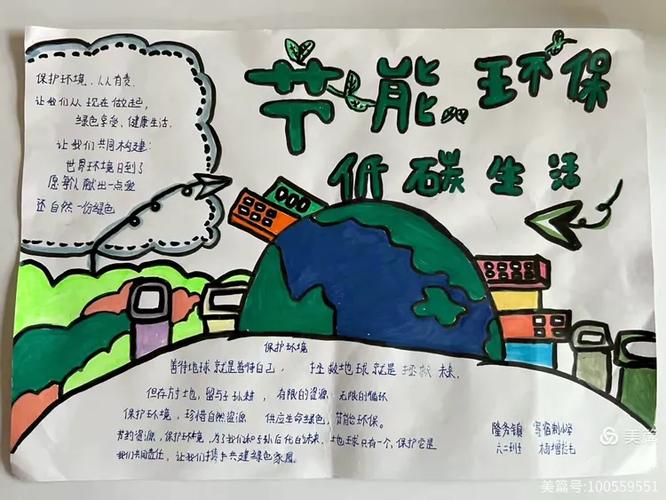 节能 环保
低碳生活
保护环境、人人有责
让我们从现在做起，
绿色享受、健康生活.
让我们共同构建：
世界环境日到了
愿我们献出一点爱
还自然一份绿色
保护环境
善待地球就是善待自己， 拯救地球就是拯救未来.
但存方寸地，留与子孙耕，有限的资源 无限的循环
保护环境，珍惜自然资源 供应生命绿色，节能环保。
节约资源，保护环境，为了我们和子孙后代的未来，地球只有一个，保护它是
我们共同责任，让我们携手共建绿色家园。
隆务镇 寄宿制小学
六二班
美篇
美篇号:100559551